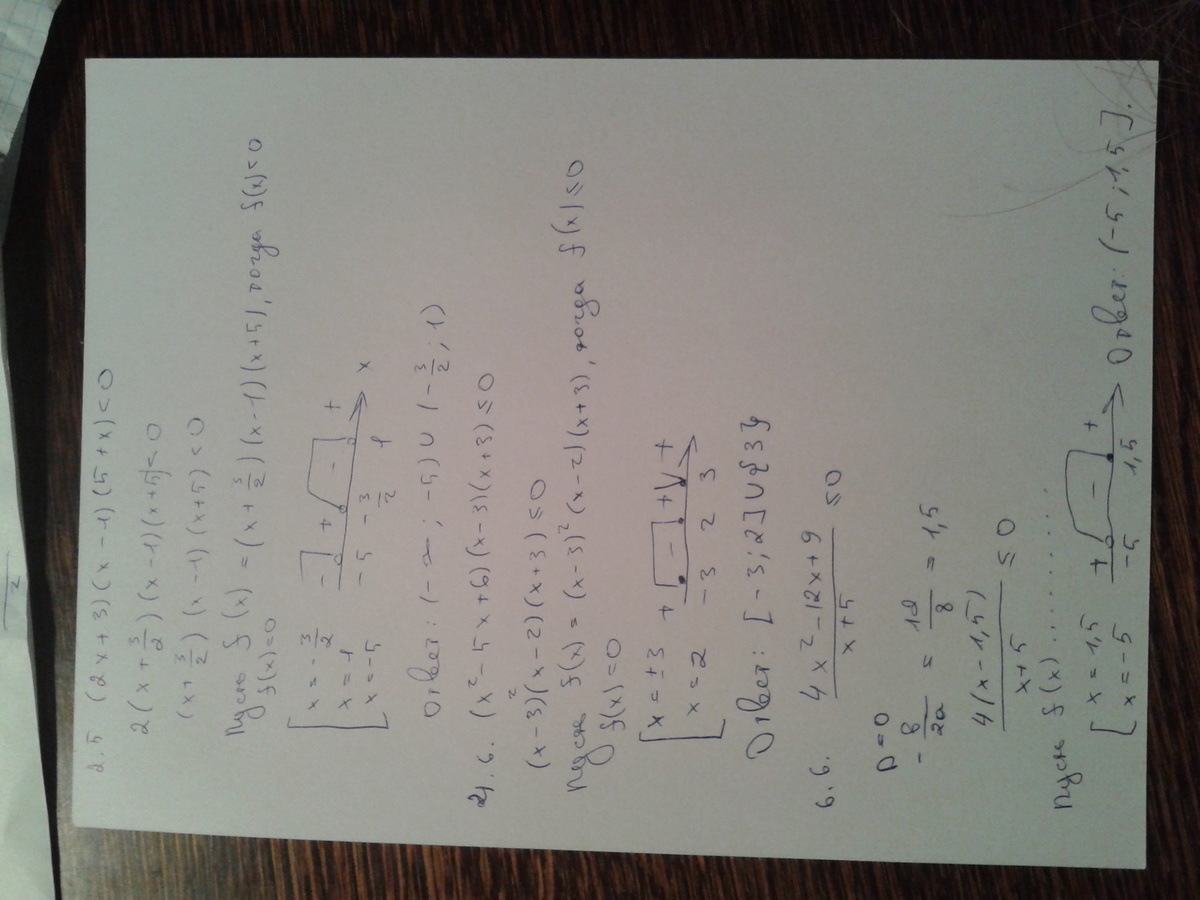 2.5 (2x+3)(x-1)(5+x)<0
2(x+3/2)(x-1)(x+5)<0
(x+3/2)(x-1)(x+5)<0
Пусть f(x) = (x+3/2)(x-1)(x+5), тогда f(x)<0
f(x)=0
[ x=-3/2
x=1
x=-5
- + - +
-5 -3/2 1 x
Ответ: (-∞; -5) ∪ (-3/2; 1)
4.6. (x²-5x+6)(x-3)(x+3)≤0
(x-3)²(x-2)(x+3)≤0
Пусть f(x) = (x-3)²(x-2)(x+3), тогда f(x)≤0
f(x)=0
[ x=±3
x=2
+ - + +
-3 2 3
Ответ: [-3;2]∪{3}
6.6. (4x²-12x+9)/(x+5) ≤0
D=0
-b/2a = 12/8 = 1,5
4(x-1,5)/(x+5) ≤0
Пусть f(x).........
[ x=1,5
x=-5
+ - +
-5 1,5
Ответ: (-5;1,5].